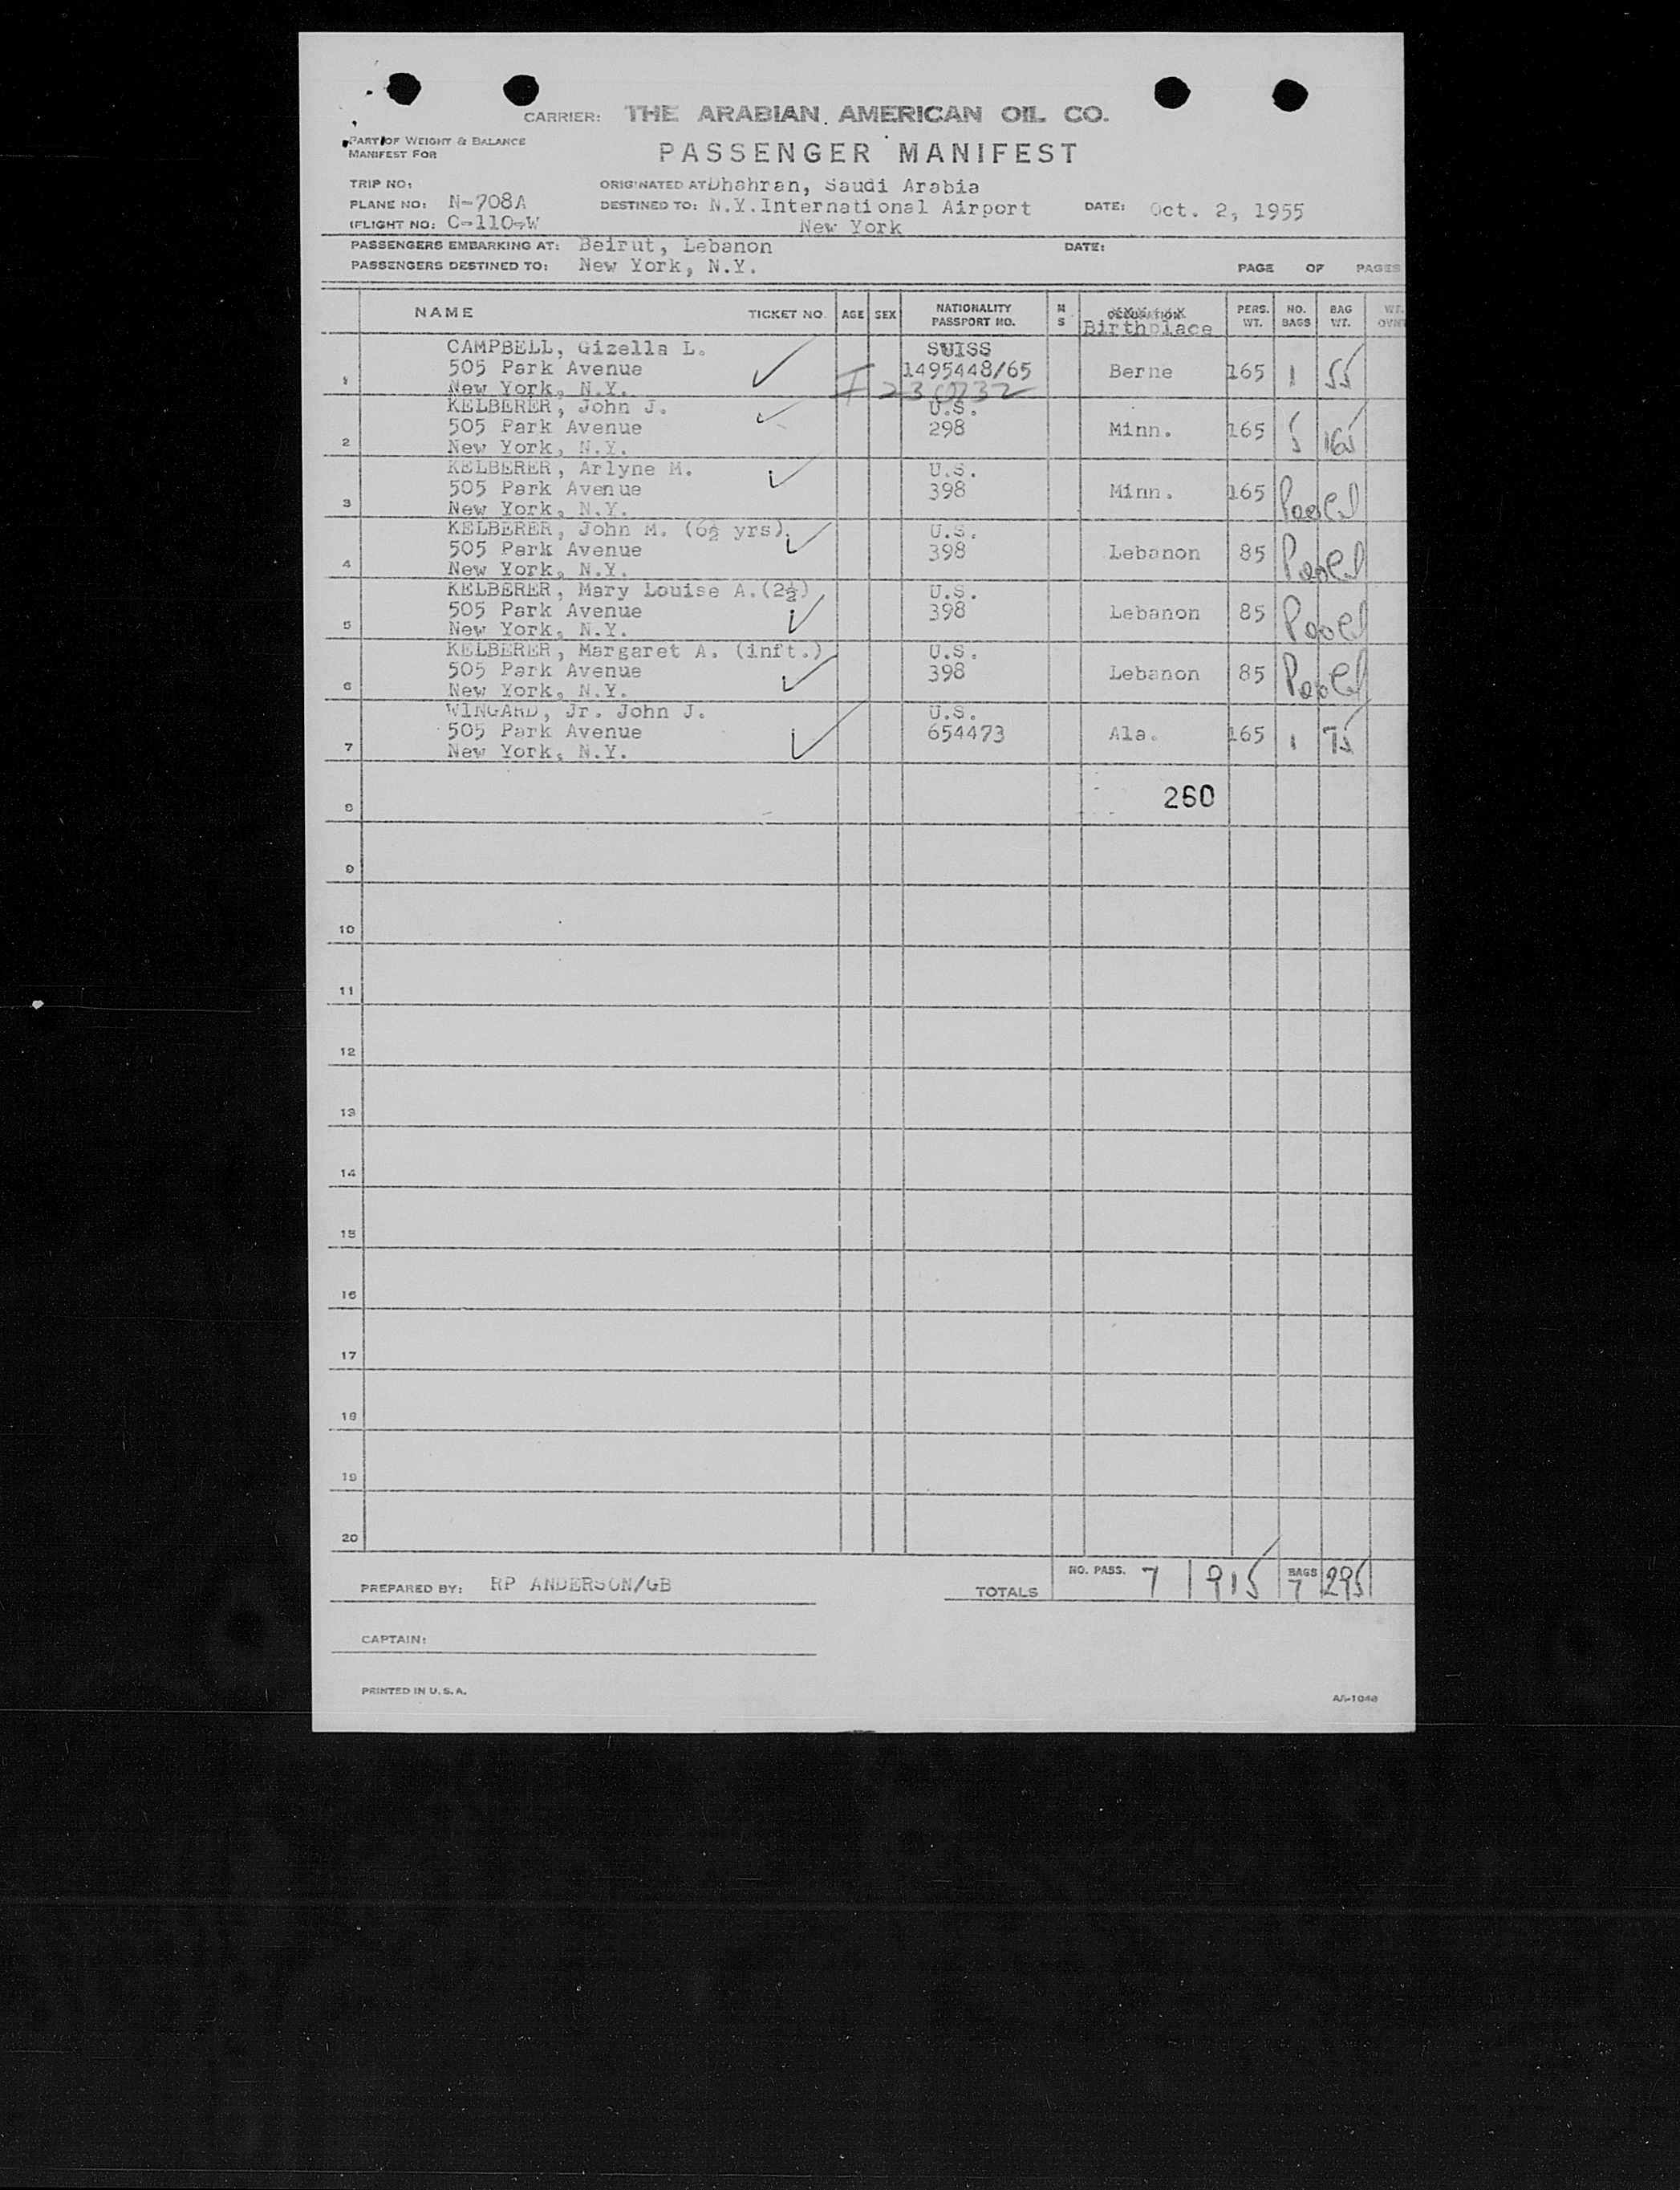 CARRIER: THE ARABIAN AMERICAN OIL CO.
PART OF WEIGHT & BALANCE
MANIFEST FOR
PASSENGER MANIFEST
TRIP NO:
ORIGINATED AT Dhahran, Saudi Arabia
PLANE NO: N-708A
DESTINED TO: N.Y.International Airport
DATE: Oct. 2, 1955
FLIGHT NO: C-110-W
New York
PASSENGERS EMBARKING AT: Beirut, Lebanon
DATE:
PASSENGERS DESTINED TO: New York, N.Y.
PAGE OF PAGES
NAME TICKET NO. AGE SEX NATIONALITY PASSPORT NO. M S OCCUPATION Birthplace PERS. WT. NO. BAGS BAG WT. WT. OVWT
CAMPBELL, Gizella L. SUISS
505 Park Avenue 1495448/65 Berne 165 1 55
1 New York, N.Y.
KELBERER, John J. U.S.
505 Park Avenue 298 Minn. 165 5 165
2 New York, N.Y.
KELBERER, Arlyne M. U.S.
505 Park Avenue 398 Minn. 165 Pooled
3 New York, N.Y.
KELBERER, John M. (6½ yrs) U.S.
505 Park Avenue 398 Lebanon 85 Pooled
4 New York, N.Y.
KELBERER, Mary Louise A.(2½) U.S.
505 Park Avenue 398 Lebanon 85 Pooled
5 New York, N.Y.
KELBERER, Margaret A. (inft.) U.S.
505 Park Avenue 398 Lebanon 85 Pooled
6 New York, N.Y.
WINGARD, Jr. John J. U.S.
505 Park Avenue 654473 Ala. 165 1 75
7 New York, N.Y.
260
8
9
10
11
12
13
14
15
16
17
18
19
20
PREPARED BY: RP ANDERSON/GB
TOTALS NO. PASS. 7 915 BAGS 7 295
CAPTAIN:
PRINTED IN U.S.A.
AA-1048